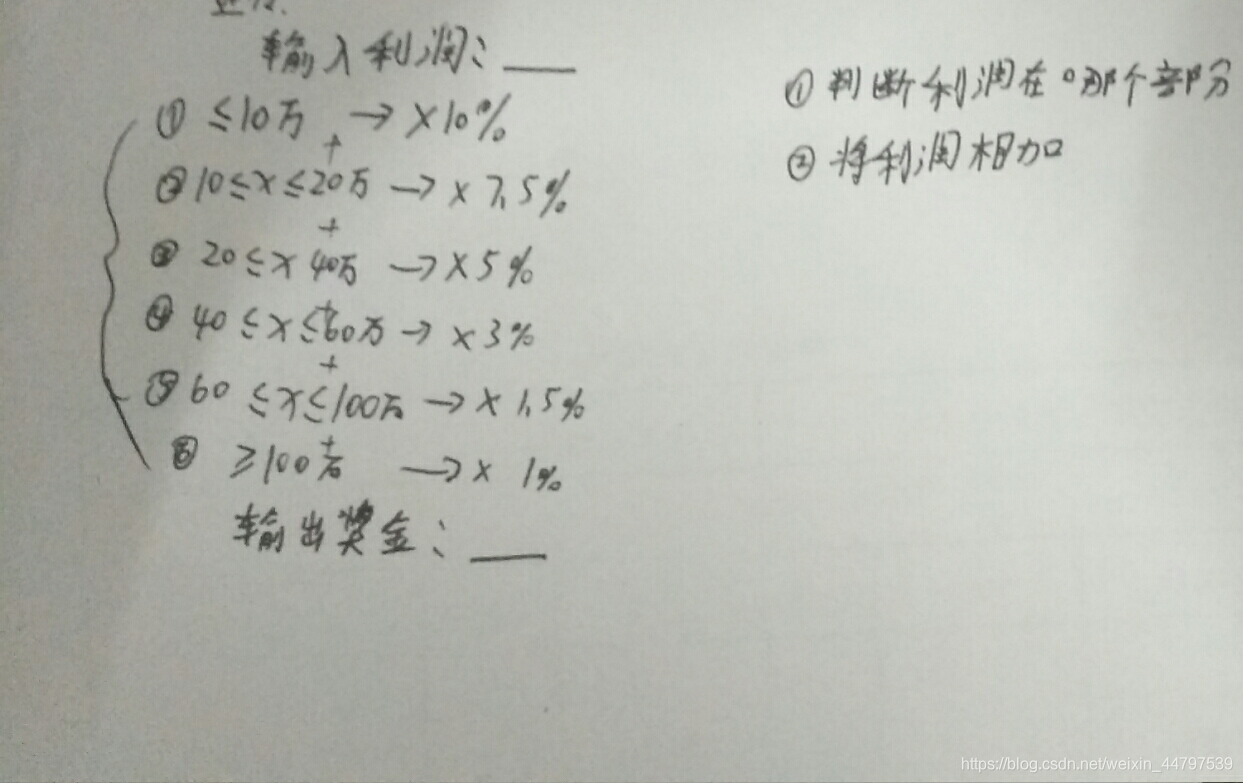 输入利润：___
① ≤10万 → ×10%
+
② 10≤x≤20万 → × 7.5%
+
③ 20≤x 40万 → ×5%
+
④ 40≤x≤60万 → ×3%
+
⑤ 60≤x≤100万 → × 1.5%
+
⑥ ≥100万 → × 1%
输出奖金：___
① 判断利润在哪个部分
② 将利润相加
https://blog.csdn.net/weixin_44797539